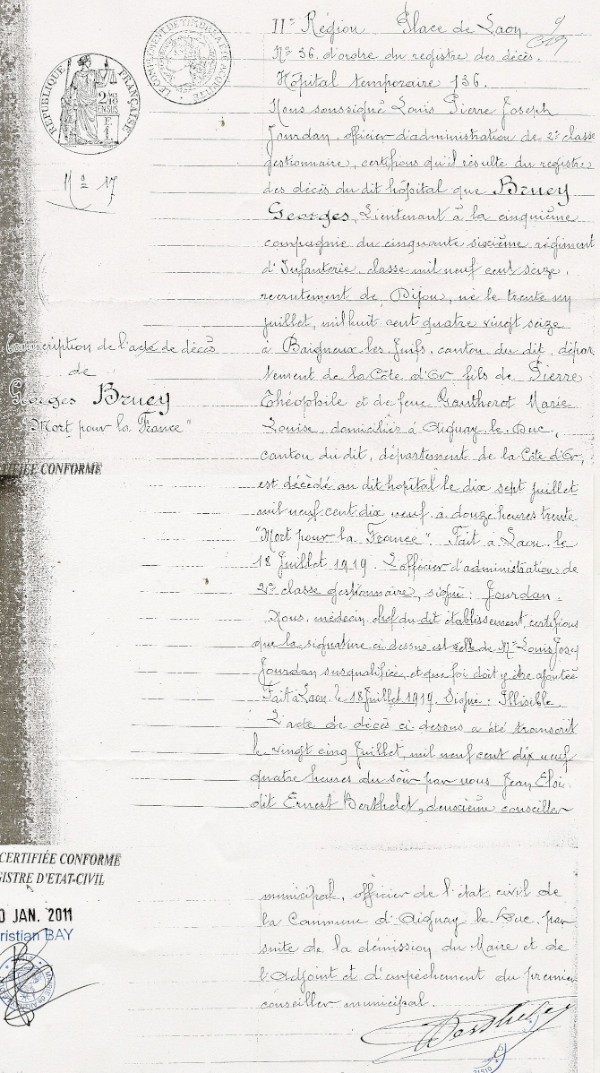 IIe Région Place de Laon
No 36. d'ordre du registre des décès.
Hôpital temporaire 136.
Nous soussigné Louis Pierre Joseph
Jourdan, officier d'administration de 2e classe
gestionnaire, certifions qu'il résulte du registre
des décès du dit hôpital que Bruey
Georges, Lieutenant à la cinquième
compagnie du cinquante sixième régiment
d'Infanterie, classe mil neuf cent seize,
recrutement de Dijon, né le trente un
juillet, mil huit cent quatre vingt seize
à Baigneux les Juifs, canton du dit, dépar
tement de la Côte d'Or fils de Pierre
Théophile et de feue Gautherot Marie
Louise, domiciliés à Aignay-le-Duc,
canton du dit, département de la Côte d'Or,
est décédé au dit hôpital le dix sept juillet
mil neuf cent dix neuf à douze heures trente
"Mort pour la France". Fait à Laon, le
18 Juillet 1919. L'officier d'administration de
2e classe gestionnaire, signé : Jourdan.
Nous, médecin chef du dit établissement, certifions
que la signature ci dessus est celle de Mr Louis Josep
Jourdan susqualifiée, et que foi doit y être ajoutée
Fait à Laon le 18 Juillet 1919 Signé : Illisible
L'acte de décès ci-dessus a été transcrit
le vingt cinq Juillet, mil neuf cent dix neuf
quatre heures du soir par nous Jean Eloi
dit Ernest Berthelet, deuxième conseiller
municipal, officier de l'état civil de
la Commune d'Aignay le Duc, par
suite de la démission du Maire et de
l'Adjoint et d'empêchement du premier
conseiller municipal.
RÉPUBLIQUE FRANÇAISE
No 17
Transcription de l'acte de décès
de
Georges Bruey
"Mort pour la France"
CONFORME
CERTIFIÉE CONFORME
GISTRE D'ETAT-CIVIL
0 JAN. 2011
ristian BAY